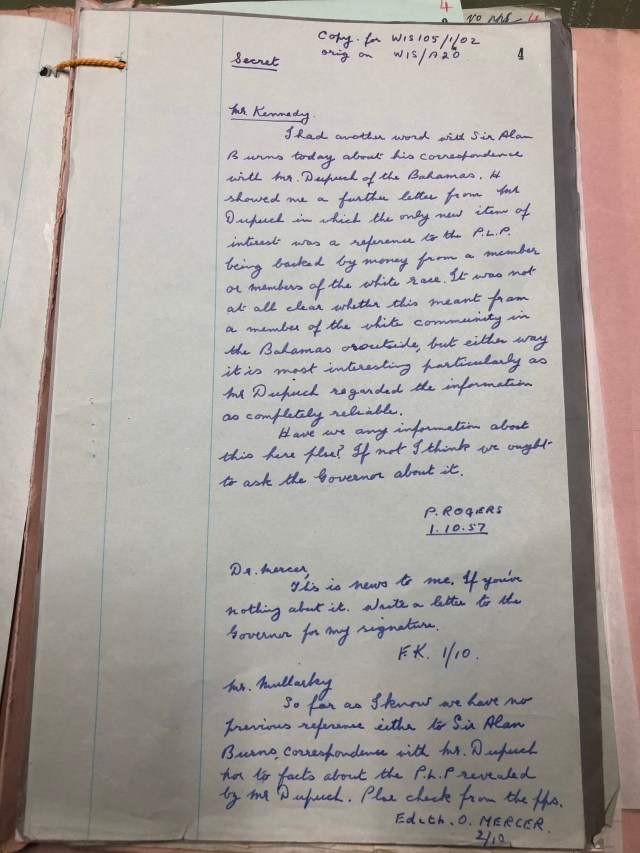 4
NO NPS 4
Copy. for WIS105/1/02
orig on WIS/A20 4
Secret
Mr. Kennedy.
I had another word with Sir Alan
Burns today about his correspondence
with Mr. Dupuch of the Bahamas. H
showed me a further letter from Mr
Dupuch in which the only new item of
interest was a reference to the P.L.P.
being backed by money from a member
or members of the white race. It was not
at all clear whether this meant from
a member of the white community in
the Bahamas or outside, but either way
it is most interesting particularly as
Mr Dupuch regarded the information
as completely reliable.
Have we any information about
this here plse? If not I think we ought
to ask the Governor about it.
P. ROGERS
1.10.57
Dr. Mercer,
This is news to me. If you've
nothing about it. Write a letter to the
Governor for my signature.
F.K. 1/10.
Mr. Mullarky
So far as I know we have no
previous reference either to Sir Alan
Burns, correspondence with Mr. Dupuch
nor to facts about the P.L.P revealed
by Mr Dupuch. Plse check from the pps.
Edith. O. MERCER.
2/10